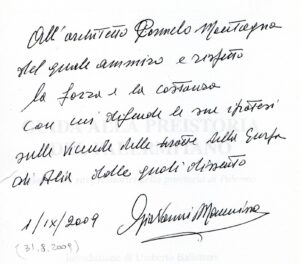 All'architetto Carmelo Montagna
del quale ammiro e rispetto
la forza e la costanza
con cui difende le sue ipotesi
sulle vicende delle grotte della Gurfa
di Alia dalle quali dissento
1/IX/2009 Giovanni Mannino
(31.8.2009)